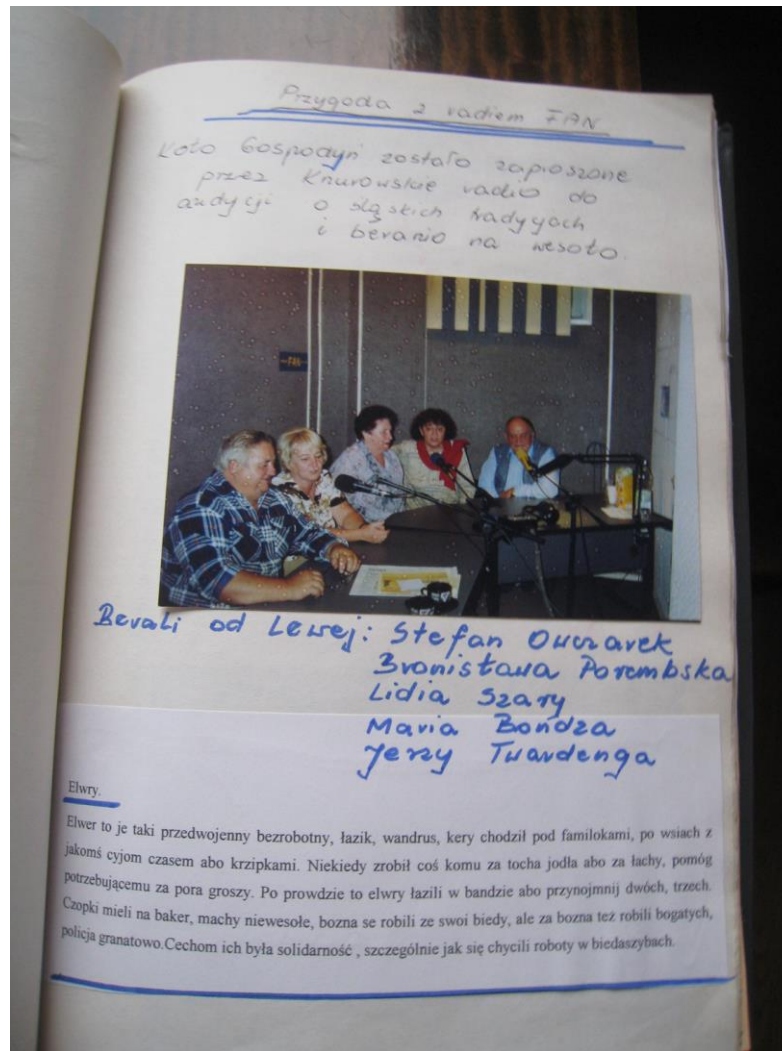 Przygoda z radiem FAN
Koło Gospodyń zostało zaproszone
przez Knurowskie radio do
audycji o śląskich tradycjach
i beranio na wesoło.
FAN
Berali od Lewej: Stefan Owczarek
Bronisława Porembska
Lidia Szary
Maria Bońdza
Jerzy Twardenga
Elwry.
Elwer to je taki przedwojenny bezrobotny, łazik, wandrus, kery chodził pod familokami, po wsiach z
jakomś cyjom czasem abo krzipkami. Niekiedy zrobił coś komu za tocha jodła abo za łachy, pomóg
potrzebującemu za pora groszy. Po prowdzie to elwry łazili w bandzie abo przynojmnij dwóch, trzech.
Czopki mieli na baker, machy niewesołe, bozna se robili ze swoi biedy, ale za bozna też robili bogatych,
policja granatowo.Cechom ich była solidarność , szczególnie jak się chycili roboty w biedaszybach.